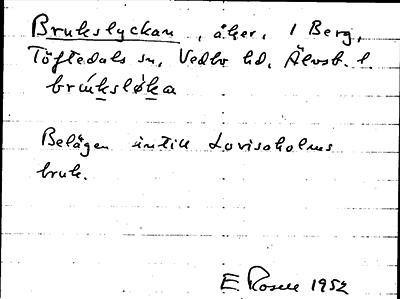 Brukslyckan, åker, 1 Berg,
Töftedals sn, Vedbo hd, Älvsb. l.
brúkslø̀ka
Belägen intill Lovisaholms
bruk.
E Rosell 1952